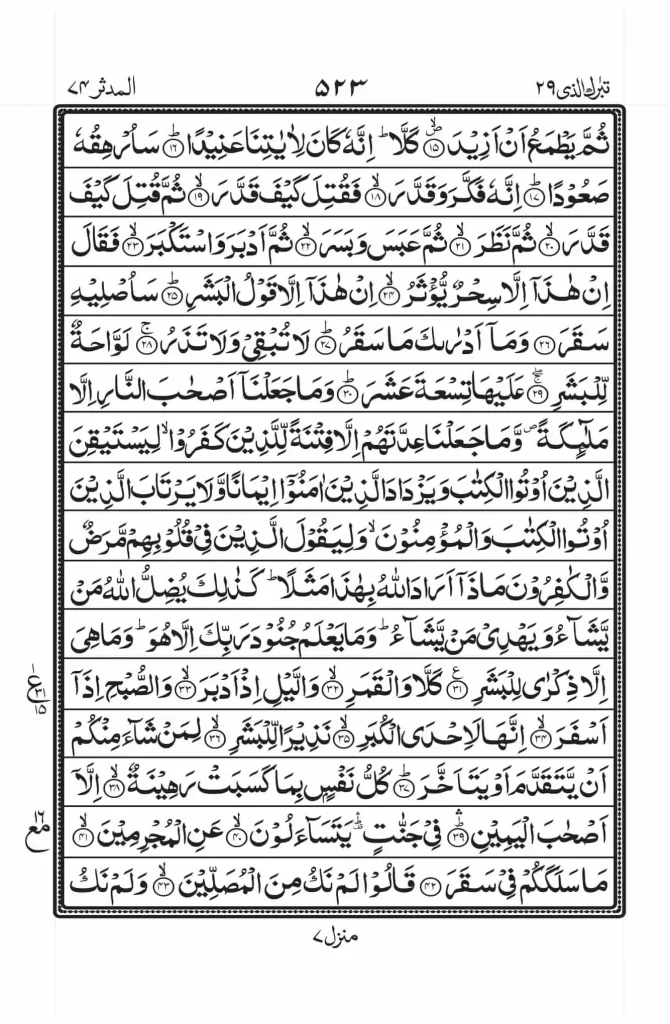 تبٰرك الذی ۲۹ ۵۲۳ المدثر ۷۴
ثُمَّ يَطْمَعُ اَنْ اَزِيْدَ ۙ﴿۱۵﴾ كَلَّا ؕ اِنَّهٗ كَانَ لِاٰيٰتِنَا عَنِيْدًا ؕ﴿۱۶﴾ سَاُرْهِقُهٗ
صَعُوْدًا ؕ﴿۱۷﴾ اِنَّهٗ فَكَّرَ وَقَدَّرَ ۙ﴿۱۸﴾ فَقُتِلَ كَيْفَ قَدَّرَ ۙ﴿۱۹﴾ ثُمَّ قُتِلَ كَيْفَ
قَدَّرَ ۙ﴿۲۰﴾ ثُمَّ نَظَرَ ۙ﴿۲۱﴾ ثُمَّ عَبَسَ وَبَسَرَ ۙ﴿۲۲﴾ ثُمَّ اَدْبَرَ وَاسْتَكْبَرَ ۙ﴿۲۳﴾ فَقَالَ
اِنْ هٰذَاۤ اِلَّا سِحْرٌ يُّؤْثَرُ ۙ﴿۲۴﴾ اِنْ هٰذَاۤ اِلَّا قَوْلُ الْبَشَرِ ؕ﴿۲۵﴾ سَاُصْلِيْهِ
سَقَرَ ﴿۲۶﴾ وَمَاۤ اَدْرٰىكَ مَا سَقَرُ ؕ﴿۲۷﴾ لَا تُبْقِيْ وَلَا تَذَرُ ۚ﴿۲۸﴾ لَوَّاحَةٌ
لِّلْبَشَرِ ۚ﴿۲۹﴾ عَلَيْهَا تِسْعَةَ عَشَرَ ؕ﴿۳۰﴾ وَمَا جَعَلْنَاۤ اَصْحٰبَ النَّارِ اِلَّا
مَلٰٓئِكَةً ۪ وَّمَا جَعَلْنَا عِدَّتَهُمْ اِلَّا فِتْنَةً لِّلَّذِيْنَ كَفَرُوْا ۙ لِيَسْتَيْقِنَ
الَّذِيْنَ اُوْتُوا الْكِتٰبَ وَيَزْدَادَ الَّذِيْنَ اٰمَنُوْۤا اِيْمَانًا وَّلَا يَرْتَابَ الَّذِيْنَ
اُوْتُوا الْكِتٰبَ وَالْمُؤْمِنُوْنَ ۙ وَلِيَقُوْلَ الَّذِيْنَ فِيْ قُلُوْبِهِمْ مَّرَضٌ
وَّالْكٰفِرُوْنَ مَاذَاۤ اَرَادَ اللّٰهُ بِهٰذَا مَثَلًا ؕ كَذٰلِكَ يُضِلُّ اللّٰهُ مَنْ
يَّشَآءُ وَيَهْدِيْ مَنْ يَّشَآءُ ؕ وَمَا يَعْلَمُ جُنُوْدَ رَبِّكَ اِلَّا هُوَ ؕ وَمَا هِيَ
اِلَّا ذِكْرٰى لِلْبَشَرِ ﴿۳۱﴾ كَلَّا وَالْقَمَرِ ۙ﴿۳۲﴾ وَالَّيْلِ اِذْ اَدْبَرَ ۙ﴿۳۳﴾ وَالصُّبْحِ اِذَاۤ
ع ۳۱ ۱۵
اَسْفَرَ ۙ﴿۳۴﴾ اِنَّهَا لَاِحْدَى الْكُبَرِ ۙ﴿۳۵﴾ نَذِيْرًا لِّلْبَشَرِ ۙ﴿۳۶﴾ لِمَنْ شَآءَ مِنْكُمْ
اَنْ يَّتَقَدَّمَ اَوْ يَتَاَخَّرَ ؕ﴿۳۷﴾ كُلُّ نَفْسٍۭ بِمَا كَسَبَتْ رَهِيْنَةٌ ۙ﴿۳۸﴾ اِلَّاۤ
اَصْحٰبَ الْيَمِيْنِ ؕۛ﴿۳۹﴾ فِيْ جَنّٰتٍ ؕۛ يَتَسَآءَلُوْنَ ۙ﴿۴۰﴾ عَنِ الْمُجْرِمِيْنَ ۙ﴿۴۱﴾
۱۶ مع
مَا سَلَكَكُمْ فِيْ سَقَرَ ﴿۴۲﴾ قَالُوْا لَمْ نَكُ مِنَ الْمُصَلِّيْنَ ۙ﴿۴۳﴾ وَلَمْ نَكُ
منزل ۷